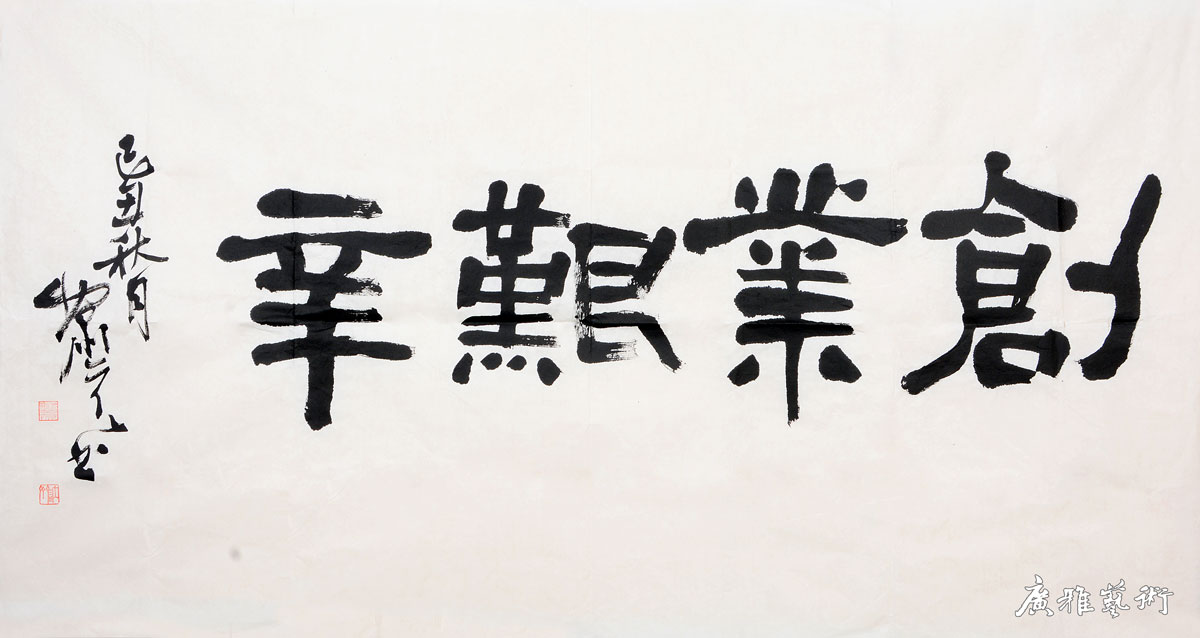 創業艱辛
己丑秋月
書
廣雅藝術